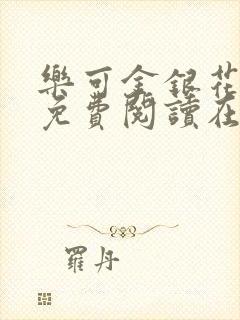 樂可金銀花
免費閱讀在
羅丹